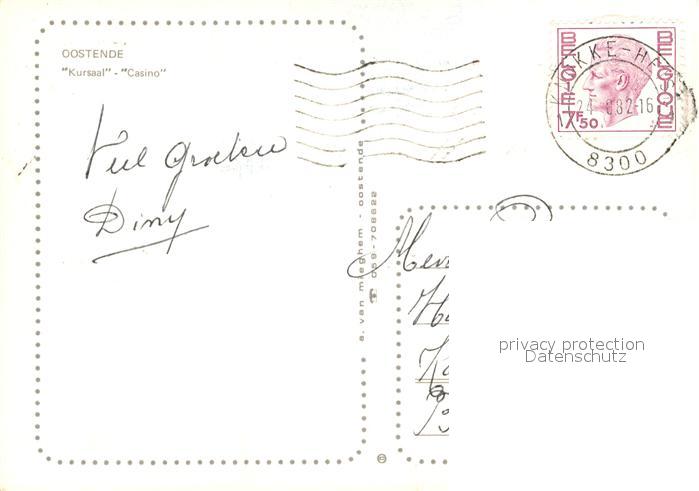 OOSTENDE
"Kursaal" - "Casino"
Veel Groeten
Diny
a. van mieghem - oostende
059-708622
BELGIE
BELGIQUE
17F50
KNOKKE-HEIST
24 -8 82-16
8300
Mev
Ho
privacy protection
Datenschutz